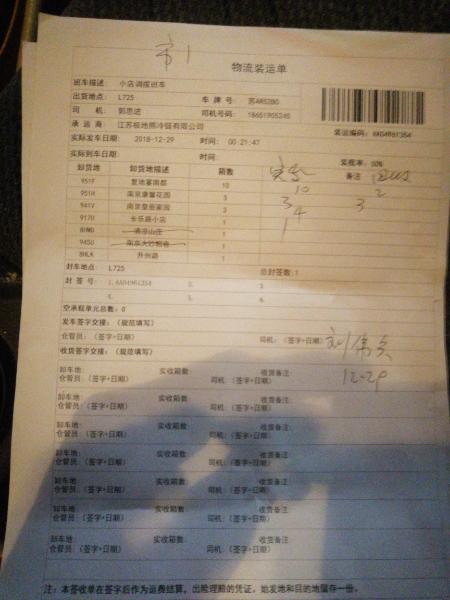 市1
物流装运单
班车描述: 小店调拨班车
出货地点: L725 车 牌 号: 苏AR5280
司 机: 郭思进 司机号码: 18651905245
承 运 商: 江苏极地熊冷链有限公司
实际发车日期: 2018-12-29 时间: 00:21:47
装运编码:
实际到车日期: 时间: 装载率: 50%
卸货地 卸货地描述 箱数 备注
951F 复地宴南都 10 10 2
951H 南京康馨花园 3 3 3
941V 南京皇册家园 3 4
917U 长乐路小店 1 1
8HMD 清凉山庄 1
945U 1
8HLK 升州路 1
封车地点: L725 总封签数: 1
封 签 号: 2. 3.
4. 5. 6.
空承载单元总数: 0
发车签字交接: (规范填写)
仓管员: (签字+日期) 司机: (签字+日期)
收货签字交接: (规范填写)
12-29
卸车地 实收箱数 收货备注:
仓管员: (签字+日期) 司机: (签字+日期)
卸车地 实收箱数: 收货备注:
仓管员: (签字+日期) 司机: (签字+日期)
卸车地 实收箱数: 收货备注:
仓管员: (签字+日期) 司机: (签字+日期)
卸车地 实收箱数: 收货备注:
仓管员: (签字+日期) 司机: (签字+日期)
卸车地 实收箱数: 收货备注:
仓管员: (签字+日期) 司机: (签字+日期)
卸车地 实收箱数: 收货备注:
仓管员: (签字+日期) 司机: (签字+日期)
卸车地 实收箱数: 收货备注:
仓管员: (签字+日期) 司机: (签字+日期)
注: 本签收单在签字后作为运费结算、出险理赔的凭证, 始发地和目的地留存一份.